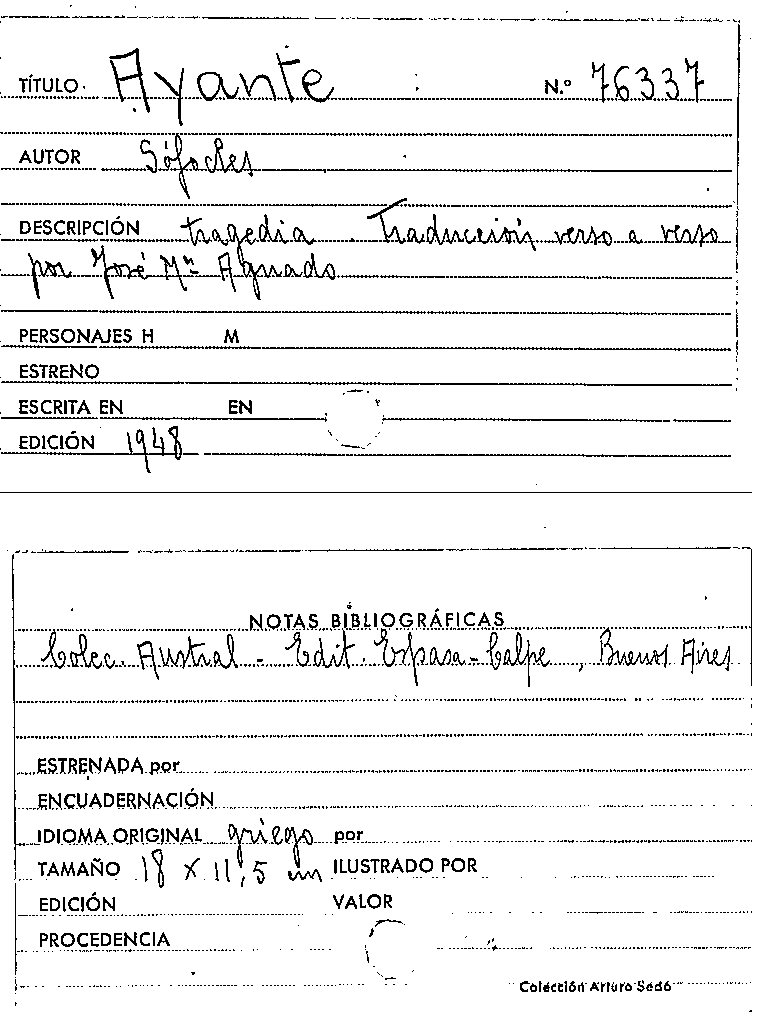 TÍTULO Ayante N.º 76337
AUTOR Sófocles
DESCRIPCIÓN tragedia. Traducción verso a verso
por José Mª Aguado
PERSONAJES H M
ESTRENO
ESCRITA EN EN
EDICIÓN 1948
NOTAS BIBLIOGRÁFICAS
Colec. Austral - Edit. Espasa-Calpe, Buenos Aires
ESTRENADA por
ENCUADERNACIÓN
IDIOMA ORIGINAL griego por
TAMAÑO 18 x 11'5 cm ILUSTRADO POR
EDICIÓN VALOR
PROCEDENCIA
Colección Arturo Sedó